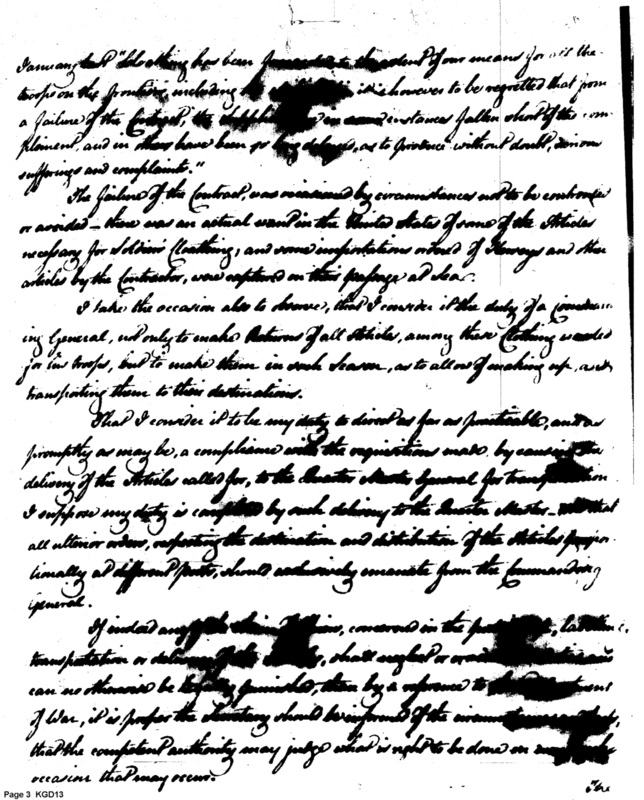 January last "Clothing has been to the extent of our means for all the
troops on the frontier, including it is however to be regretted that from
a failure of the Contract, the in some instances fallen short of the com-
plement, and in others have been so long delayed, as to produce without doubt, serious
sufferings and complaints."
The failure of the Contract, was occasioned by circumstances not to be controuled
or avoided — there was an actual want in the United States of some of the Articles
necessary for Soldiers Cloathing, and some importations ordered of Kerseys and other
articles by the Contractor, were captured on their passage at sea.
I take the occasion also to observe, that I consider it the duty of a Command-
ing General, not only to make Returns of all Articles, among these Clothing needed
for his troops, but to make them in such Season, as to allow of making up, and
transporting them to their destinations.
That I consider it to be my duty to direct as far as practicable, and as
promptly as may be, a compliance with the requisitions made by causing the
delivery of the Articles called for, to the Quarter Master General for transportation
I suppose my duty is completed by such delivery to the Quarter Master — and that
all ulterior orders, respecting the destination and distribution of the Articles propor-
tionally at different posts, should exclusively emanate from the Commanding
General.
If indeed any of the concerned in the
transportation or delivery of the shall neglect or
can no otherwise be furnished, than by a reference to the
of War, it is proper the Secretary should be informed of the
that the competent authority may judge what is right to be done on
occasion that may occur.
The
Page 3 KGD13